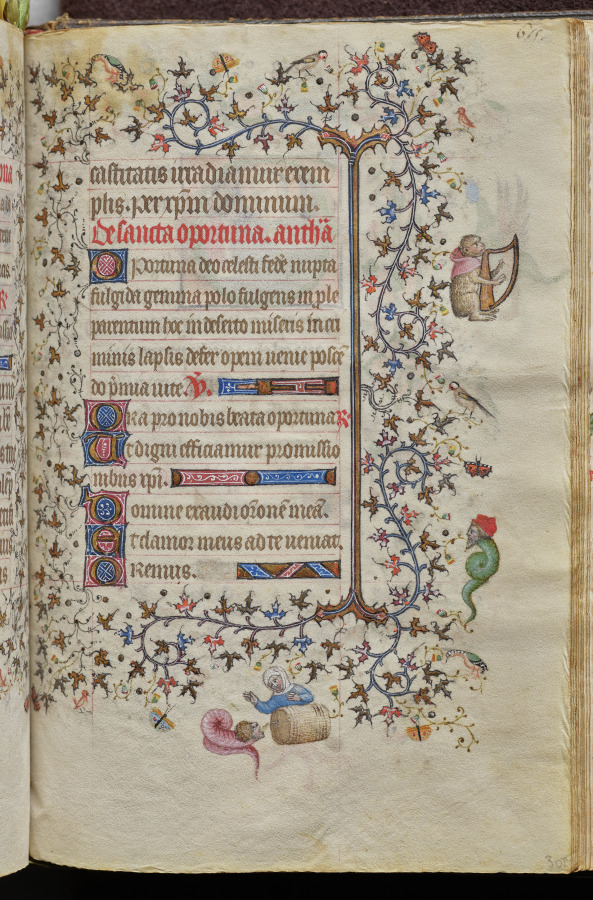 castitatis irradiamur exem
plis. Per xp̄m dominum.
De sancta oportuna. anthā
Oportuna deo celesti sede nupta
fulgida gemma polo fulgens in ple
parentum hoc in deserto miseris in cri
minis lapsis defer opem uenie posce
do p̄mia uite. V̄.
Ora pro nobis beata oportuna R̄
Et digni efficiamur promissio
nibus xp̄i.
Domine exaudi or̄onē meā.
Et clamor meus ad te ueniat.
Oremus.